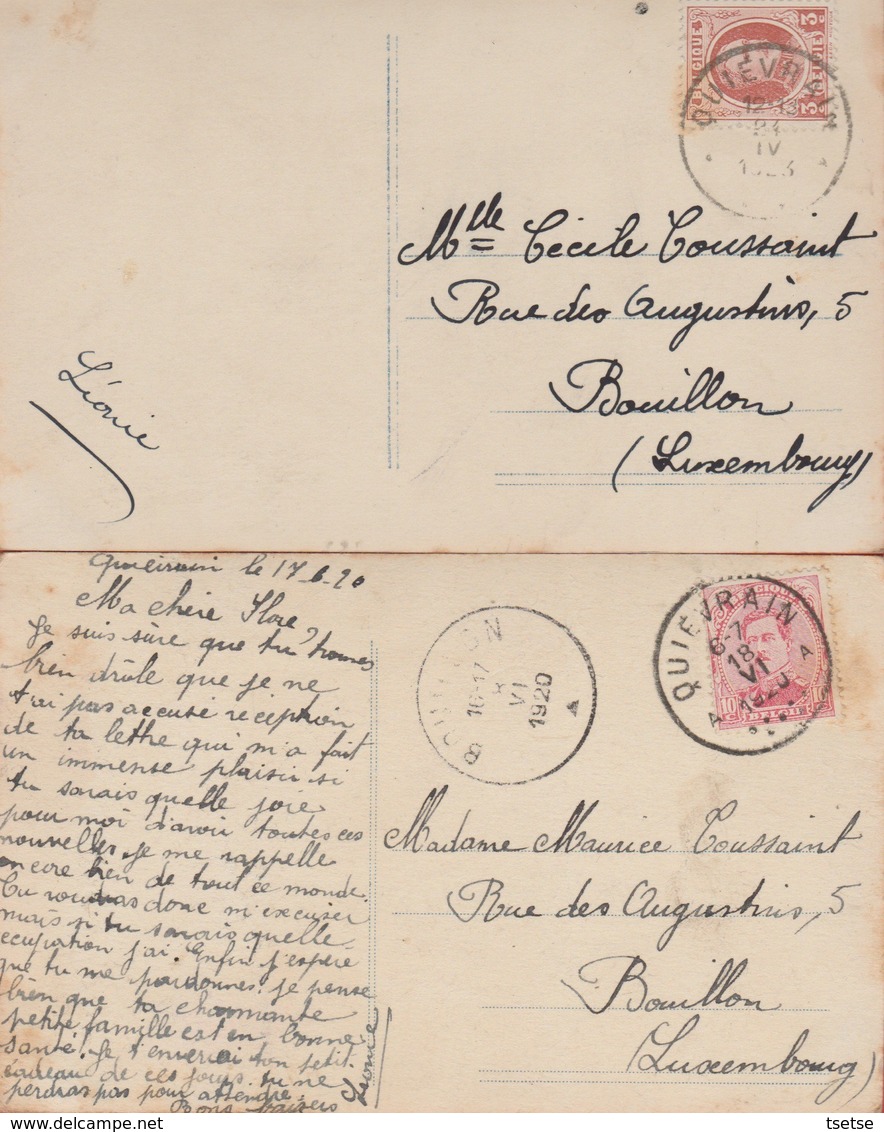 BELGIQUE
3c 3c
BELGIË
QUIÉVRAIN
12-
IV
1923
Mlle Cécile Toussaint
Rue des Augustins, 5
Bouillon
(Luxembourg)
Léonie
le 17-6-20
Ma chère
Je suis sûre que tu trouves
bien drôle que je ne
t'ai pas accusé réception
de ta lettre qui m'a fait
un immense plaisir si
tu savais quelle joie
pour moi d'avoir toutes ces
nouvelles. Je me rappelle
encore bien de tout ce monde.
Tu voudras donc m'excuser
mais si tu savais quelle
ecupation j'ai. Enfin j'espère
que tu me pardonnes. Je pense
bien que ta charmante
petite famille est en bonne
santé. Je t'enverrai ton petit
cadeau de ces jours. tu ne
perdras pas pour attendre.
Bons baisers
Léonie
BOUILLON
16-17
VI
1920
QUIÉVRAIN
6-7
18
VI
1920
A A
BELGIQUE
10 10
BELGIË
Madame Maurice Toussaint
Rue des Augustins, 5
Bouillon
(Luxembourg)
tsetse